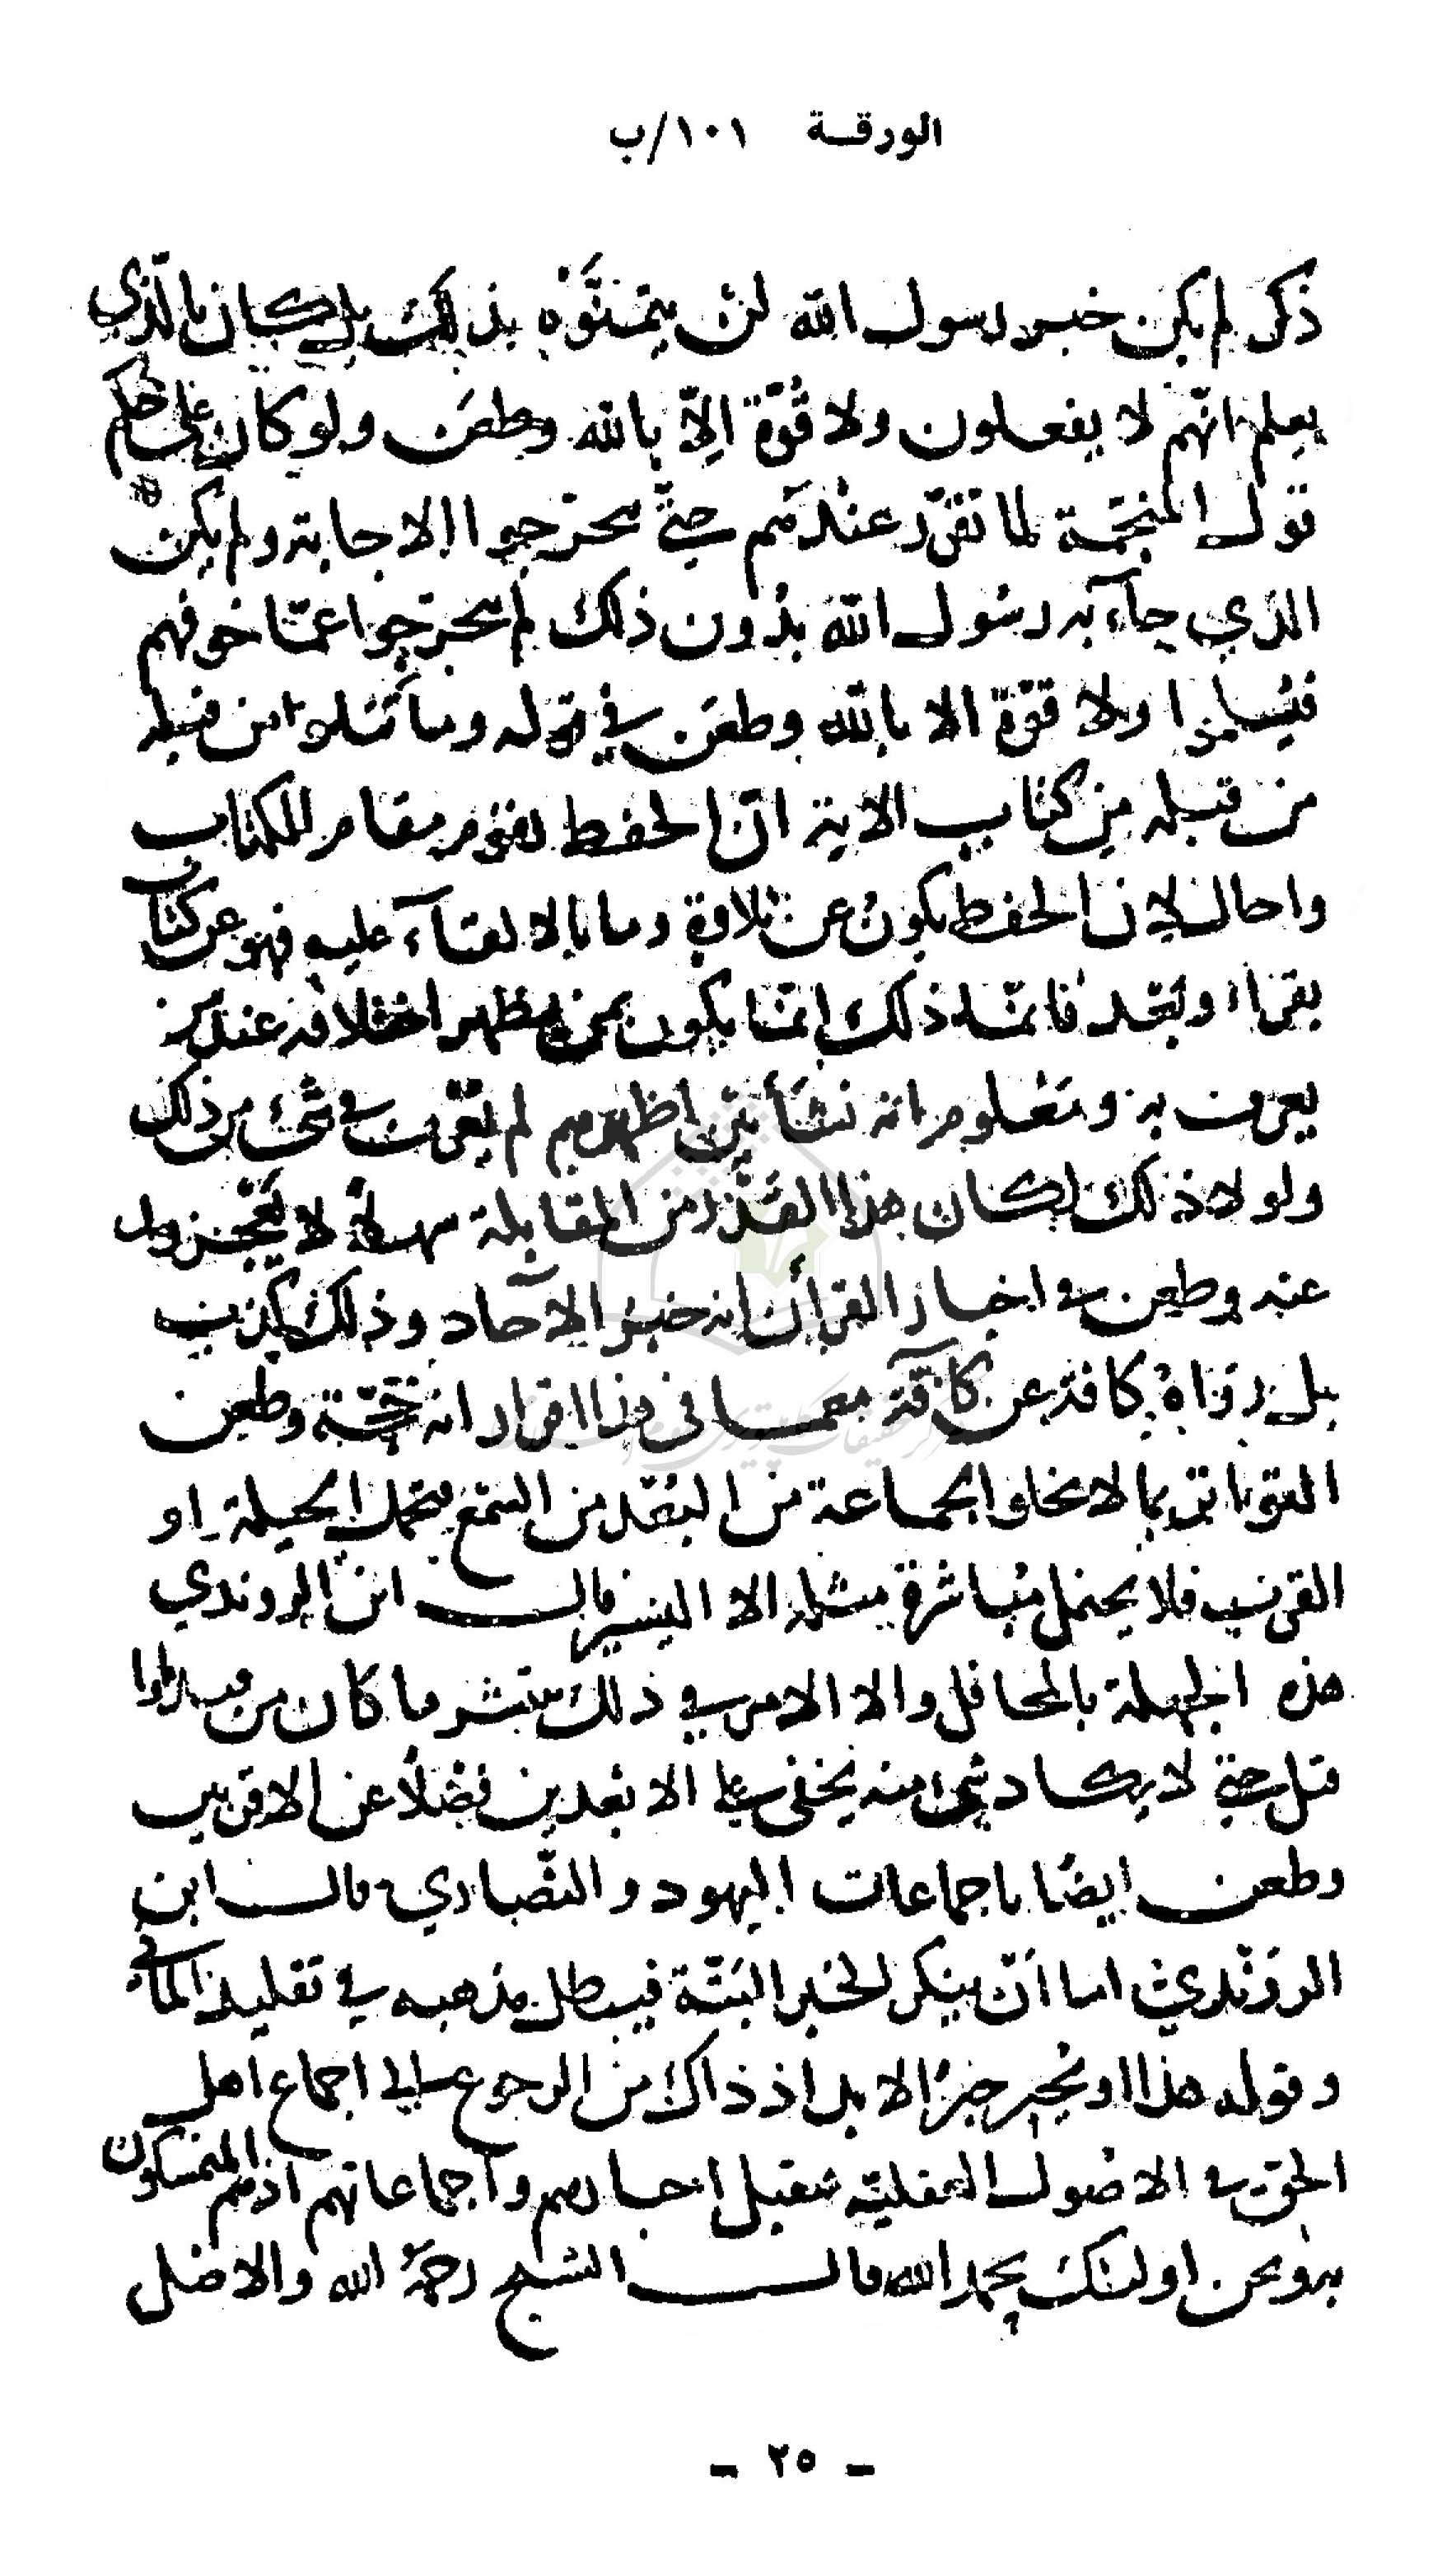 الورقة ١٠١/ب
ذكر لم يكن خبر رسول الله لن يتمنّوه بذلك بل كان بالّذي
يعلم انّهم لا يفعلون ولا قُوّة اِلّا بالله وطعَن ولو كان على حكم
قول المنجّمة لما تقرّر عندهم حتّى تحرّجوا الاجابة ولم يكن
الذي جآء به رسُول الله بدُون ذلك لم يتحرّجوا عمّا خوفهم
فيُسلموا ولا قوّة الا بالله وطعَن في قوله وما تتلوا من قبله
من قبله مِن كتاب الاية انّ الحفظ يقوم مقام الكتاب
واحال لان الحفظ يكونُ عن تلاوةٍ وما بالالقآء عليه فهو عن كتاب
يقرا وبَعْد فانّما ذلك اِنّما يكون بمن يظهر اختلافه عند من
يعرف به ومَعْلوم انه نشأ بَيْن اظهرهم لم يعرف في شئ من ذلك
ولولا ذلك لكان هذا القَدْر من المقابلة سهلاً لا يَعْجزوا
عنه وطعن في اخبار القرآن انه خبرُ الآحاد وذلك كذب
بل رَواهُ كافة عن كآفّة مع ما في هذا اقرار انه حُجّة وطعن
المتواتر بما لا يخلوا الجماعة من البُعْد من السّمْع فيحتمل الحيلة او
القرب فلا يحتمل مُباشرة مثله الا اليسير قال ابن الروندي
هذه الجهلة بالمحافل والا الامر في ذلك منتشر ما كان من
قتل حتى لا يكاد شئ منه يخفى على الابْعدين فضْلاً عن الاقربين
وطعن ايضًا باجماعات اليهود والنّصاري قال ابن
الروَنْدي اما اَنْ ينكر الخبر البَتّة فيبطل مذهبه في تقليد المانى
وقوله هذا او يُجيز خبرًا لا بد اذ ذاك من الرجوع الى اجماع اهل
الحق في الاصُول العقليّة فيقبل اخبارهم واجماعاتهم اذ هم المتمسّكون
به ونحن اولئك بحمد الله قال الشيخ رحمهُ الله والاصل
- ٢٥ -